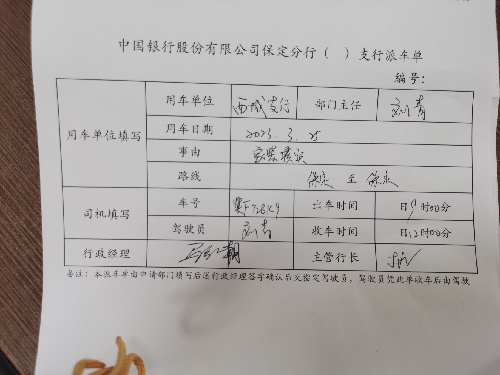 中国银行股份有限公司保定分行（ ）支行派车单
编号：
用车单位填写
用车单位 西城支行 部门主任 刘青
用车日期 2023.3.25
事由
路线 保定 至 保定
司机填写
车号 出车时间 日9时00分
驾驶员 刘青 收车时间 日12时00分
行政经理 主管行长
备注：本派车单由申请部门填写后送行政经理签字确认后交指定驾驶员，驾驶员凭此单收车后由驾驶